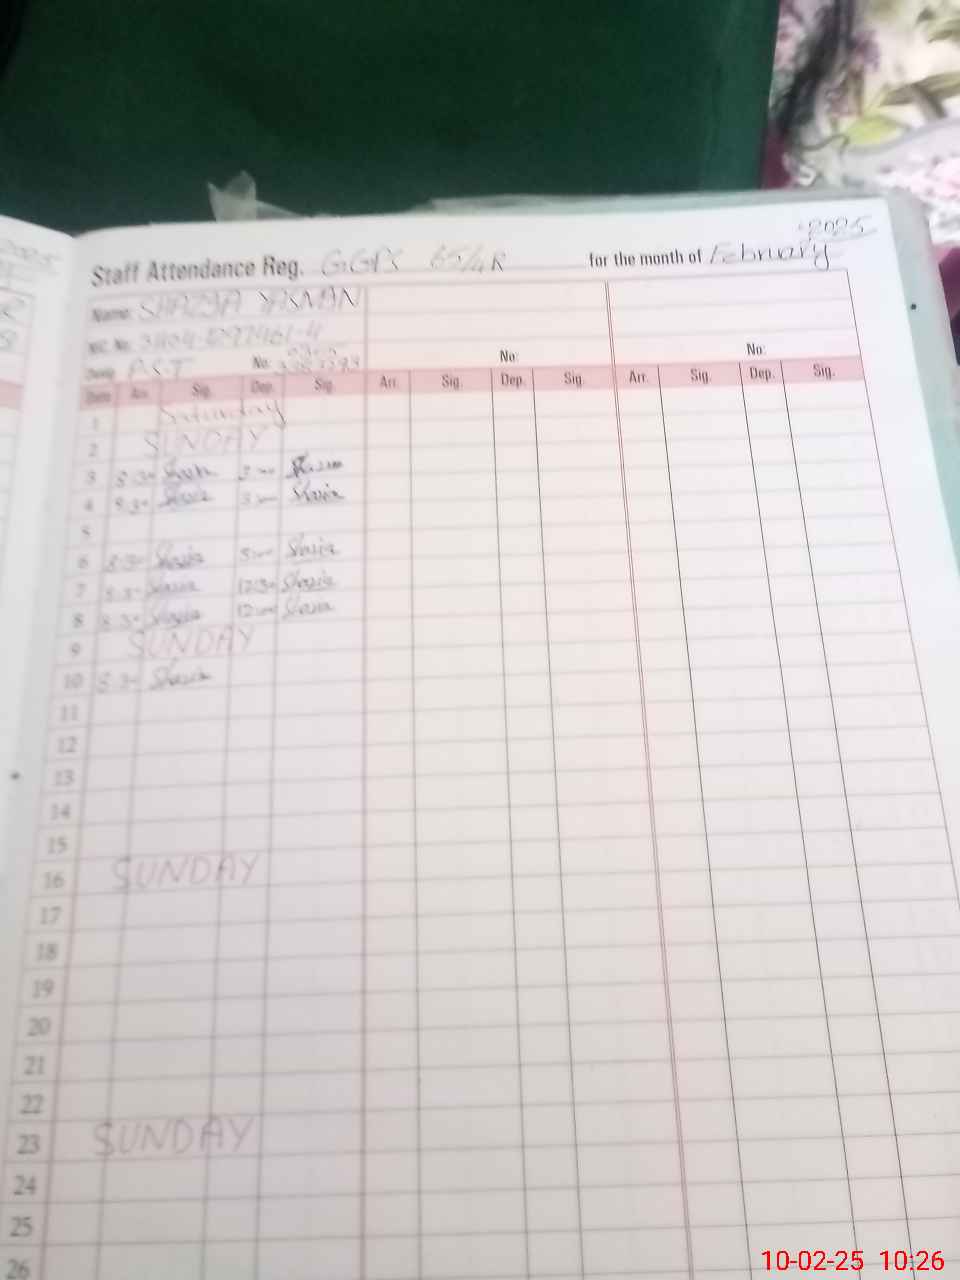 2025
Staff Attendance Reg. GGPS 65/4R for the month of February
Name: SHAZYA YASMIN
NIC. No.
Desig. PST No: No: No:
Date Arr. Sig. Dep. Sig. Arr. Sig. Dep. Sig. Arr. Sig. Dep. Sig.
1 Saturday
2 SUNDAY
3 8:30 Shazia 3:00 Shazia
4 8:30 Shazia 3:00 Shazia
5
6 8:30 Shazia 3:00 Shazia
7 8:30 Shazia 12:30 Shazia
8 8:30 Shazia 12:00 Shazia
9 SUNDAY
10 8:30 Shazia
11
12
13
14
15
16 SUNDAY
17
18
19
20
21
22
23 SUNDAY
24
25
26
10-02-25 10:26